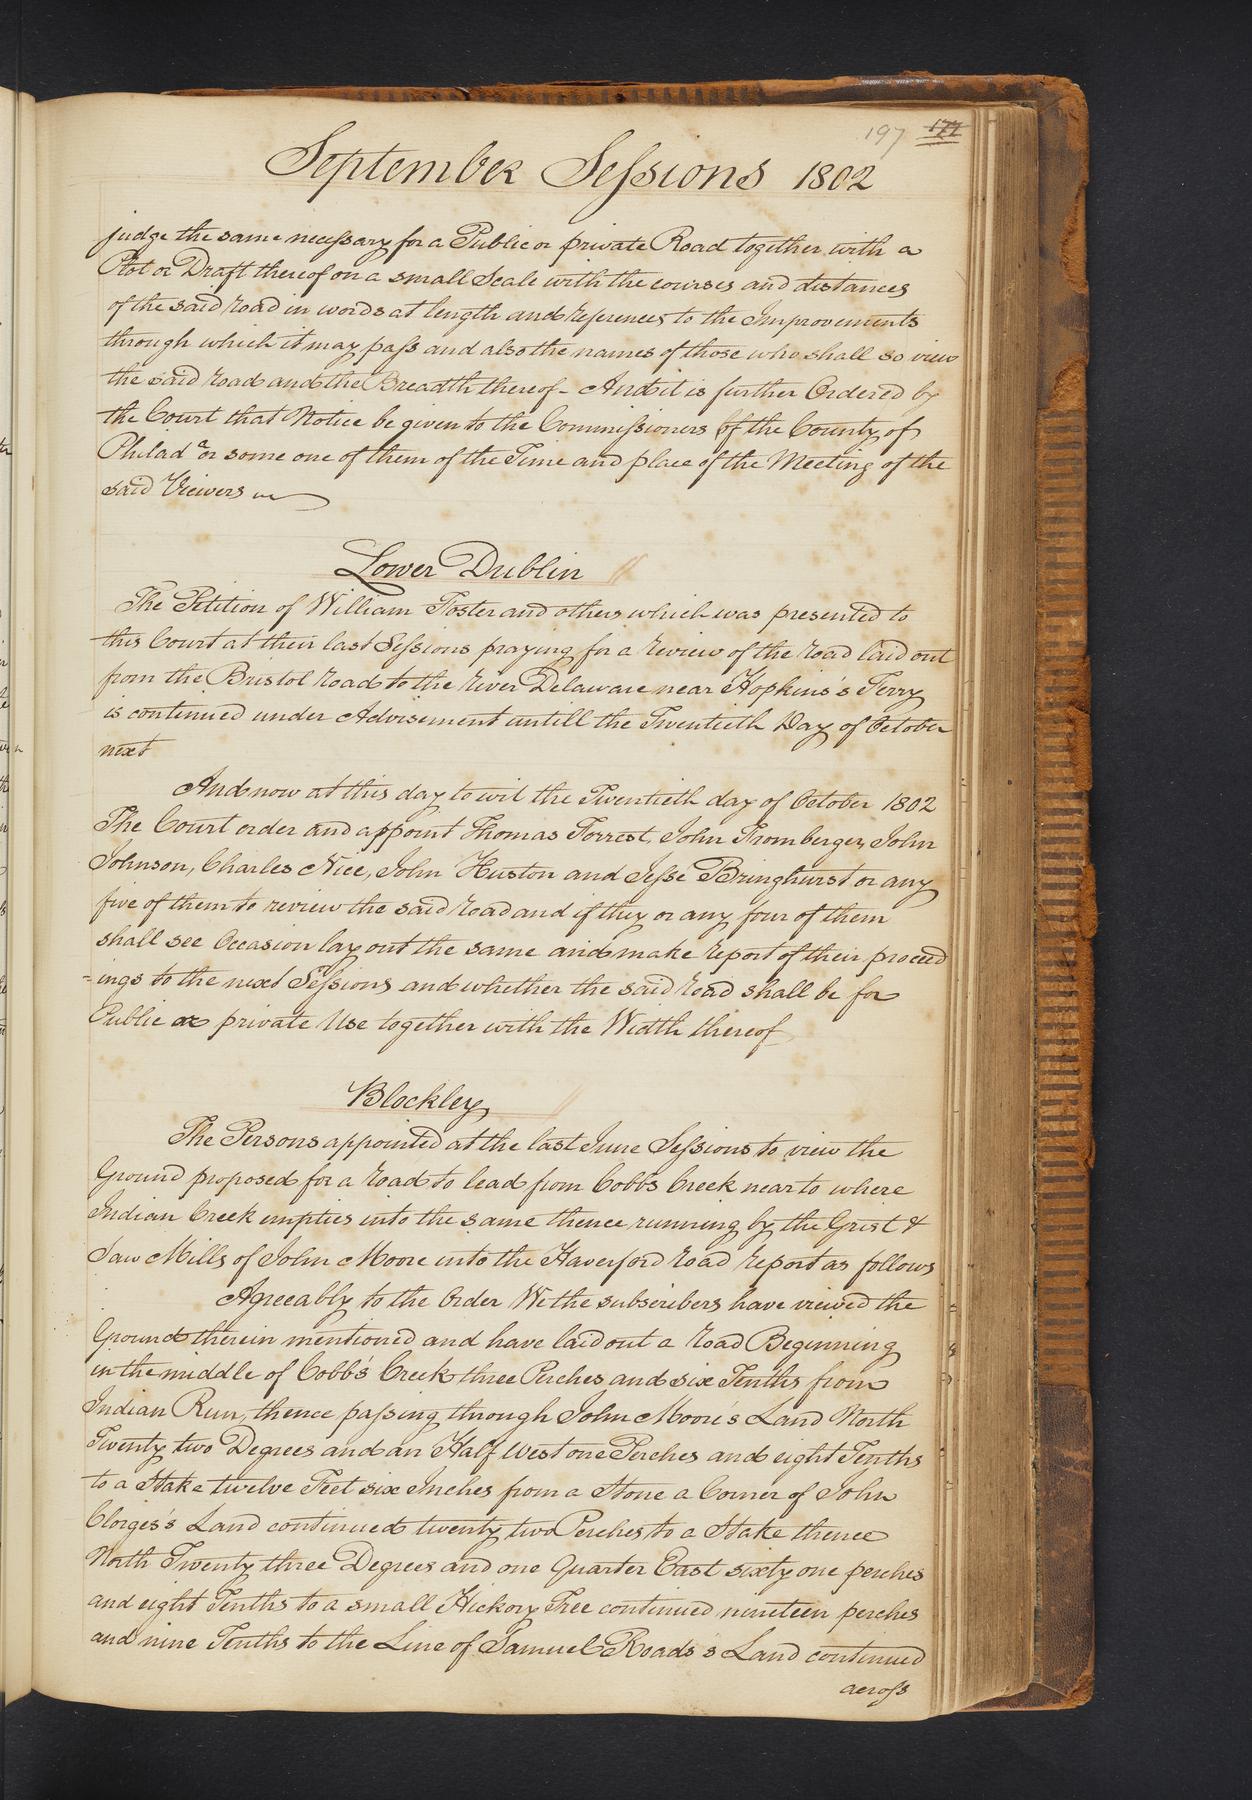 197 177
September Sessions 1802
judge the same necessary for a Public or private Road together with a
Plot or Draft thereof on a small Scale with the courses and distances
of the said road in words at length and references to the Improvements
through which it may pass and also the names of those who shall so view
the said road and the Breadth thereof - And it is further Ordered by
the Court that Notice be given to the Commissioners of the County of
Philada or some one of them of the Time and place of the Meeting of the
said Viewers
Lower Dublin
The Petition of William Foster and others which was presented to
this Court at their last Sessions praying for a review of the road laid out
from the Bristol road to the river Delaware near Hopkins's Ferry
is continued under Advisement untill the Twentieth Day of October
next
And now at this day to wit the Twentieth day of October 1802
The Court order and appoint Thomas Forrest, John Fromberger, John
Johnson, Charles Nice, John Huston and Jesse Bringhurst or any
five of them to review the said road and if they or any four of them
shall see Occasion lay out the same and make report of their proceed
=ings to the next Sessions and whether the said road shall be for
Public or private Use together with the Width thereof
Blockley
The Persons appointed at the last June Sessions to view the
Ground proposed for a road to lead from Cobbs Creek near to where
Indian Creek empties into the same thence running by the Grist &
Saw Mills of John Moore into the Haverford road report as follows
Agreeably to the Order We the subscribers have viewed the
Ground therein mentioned and have laid out a road Beginning
in the middle of Cobb's Creek three Perches and six Tenths from
Indian Run, thence passing through John Moore's Land North
Twenty two Degrees and an Half West one Perches and eight Tenths
to a Stake twelve Feet six Inches from a Stone a Corner of John
Clorges's Land continued twenty two Perches to a Stake thence
North Twenty three Degrees and one Quarter East sixty one perches
and eight Tenths to a small Hickory Tree continued nineteen perches
and nine Tenths to the Line of Samuel Roads's Land continued
across